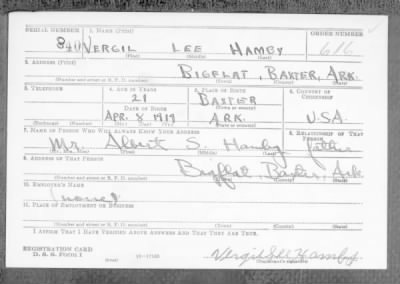 SERIAL NUMBER 1. NAME (Print) ORDER NUMBER
840 VERGIL LEE HAMBY 616
(First) (Middle) (Last)
2. ADDRESS (Print)
BIGFLAT, BAXTER, ARK.
(Number and street or R. F. D. number) (Town) (County) (State)
3. TELEPHONE 4. AGE IN YEARS 5. PLACE OF BIRTH 6. COUNTRY OF CITIZENSHIP
21 BAXTER
DATE OF BIRTH (Town or county)
APR. 8 1919 ARK. U.S.A.
(Exchange) (Number) (Mo.) (Day) (Yr.) (State or country)
7. NAME OF PERSON WHO WILL ALWAYS KNOW YOUR ADDRESS 8. RELATIONSHIP OF THAT PERSON
Mr. Albert S. Hamby father
(Mr., Mrs., Miss) (First) (Middle) (Last)
9. ADDRESS OF THAT PERSON
Bigflat, Baxter, Ark
(Number and street or R. F. D. number) (Town) (County) (State)
10. EMPLOYER'S NAME
11. PLACE OF EMPLOYMENT OR BUSINESS
(Number and street or R. F. D. number) (Town) (County) (State)
I AFFIRM THAT I HAVE VERIFIED ABOVE ANSWERS AND THAT THEY ARE TRUE.
REGISTRATION CARD
D. S. S. FORM 1
Vergil Lee Hamby